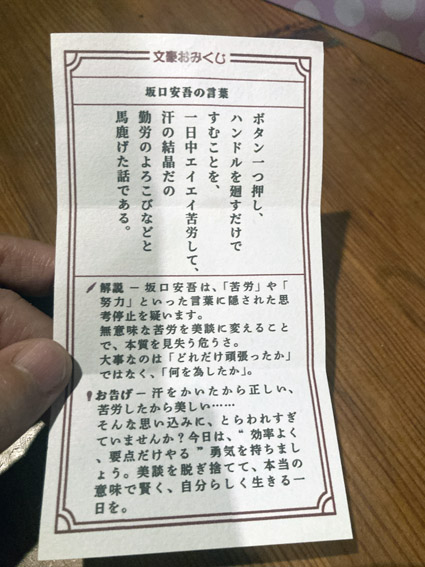 文豪おみくじ
坂口安吾の言葉
ボタン一つ押し、
ハンドルを廻すだけで
すむことを、
一日中エイエイ苦労して、
汗の結晶だの
勤労のよろこびなどと
馬鹿げた話である。
解説 ー 坂口安吾は、「苦労」や「
努力」といった言葉に隠された思
考停止を疑います。
無意味な苦労を美談に変えること
で、本質を見失う危うさ。
大事なのは「どれだけ頑張ったか」
ではなく、「何を為したか」。
お告げ ー 汗をかいたから正しい、
苦労したから美しい……
そんな思い込みに、とらわれすぎ
ていませんか？今日は、“ 効率よく
、要点だけやる ” 勇気を持ちまし
ょう。美談を脱ぎ捨てて、本当の
意味で賢く、自分らしく生きる一
日を。